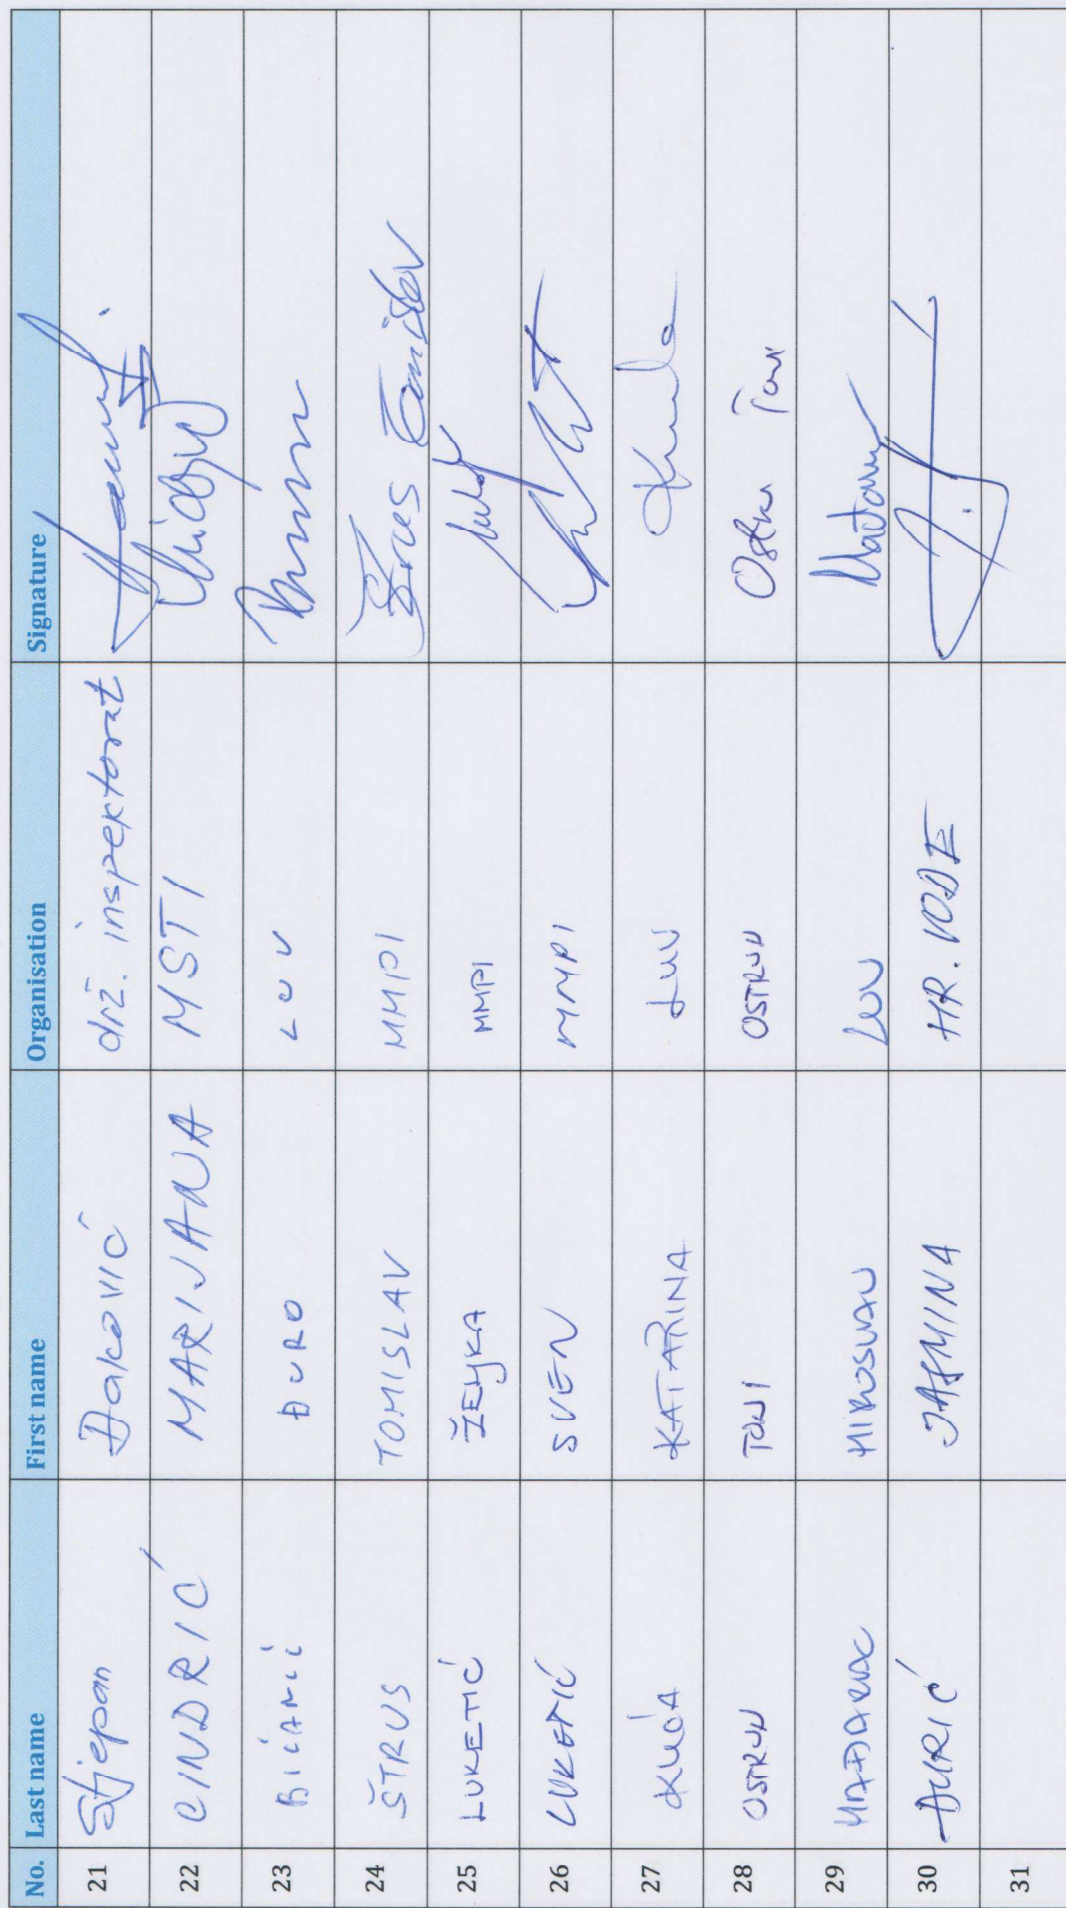 No. Last name First name Organisation Signature
21 Stjepan Đaković drž. inspektorat
22 CINDRIĆ MARIJANA MSTI
23 BIĆANIĆ ĐURO LUV
24 ŠTRUS TOMISLAV MMPI Štrus Tomislav
25 LUKETIĆ ŽELJKA MMPI
26 LUKETIĆ SVEN MMPI
27 KATARINA LUV
28 OSTRUN TONI OSTRUN
29 MAĐARAC MIROSLAV LUV
30 ĐURIĆ JASMINA HR. VODE
31